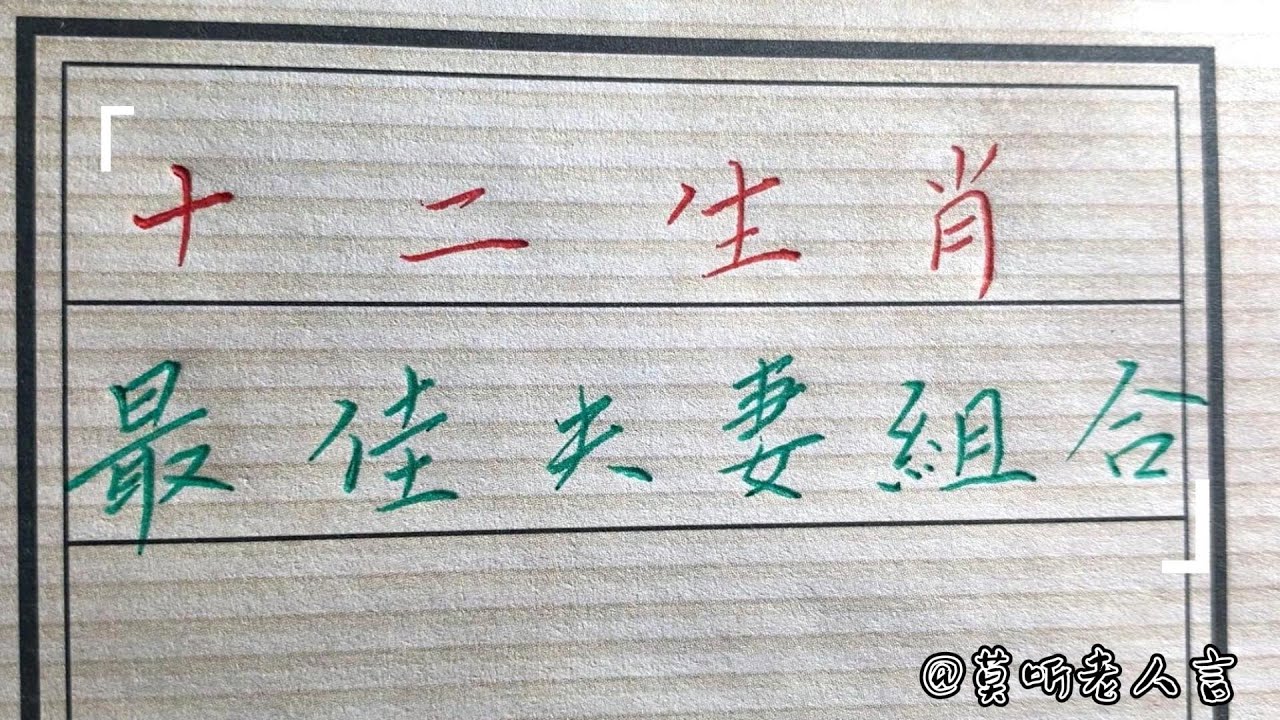 十二生肖
最佳夫妻組合
@莫听老人言